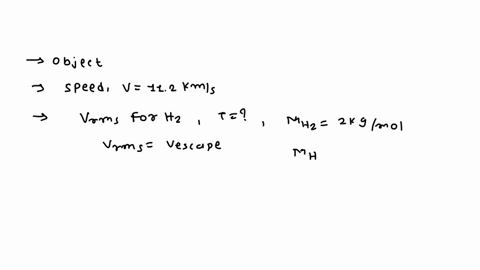 → object
→ speed, v = 11.2 km/s
→ Vrms for H2 , T = ? , MH2 = 2kg/mol
Vrms = Vescape MH